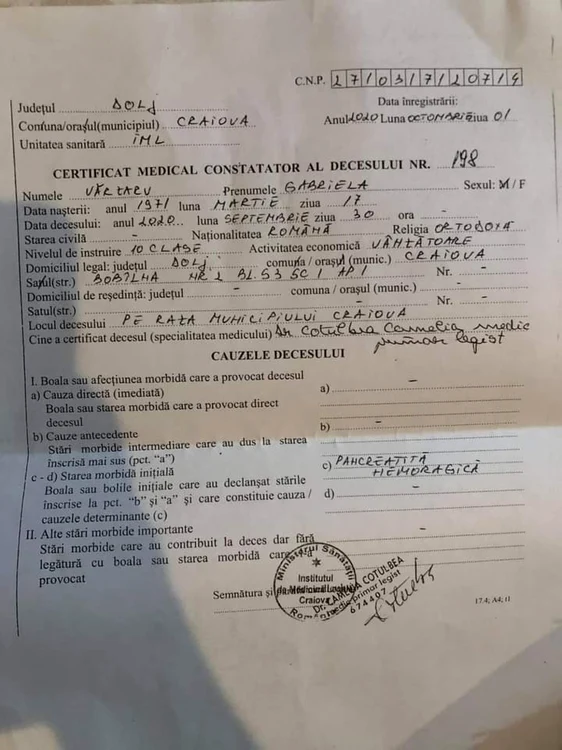 C.N.P. 2 7 1 0 3 1 7 1 2 0 7 1 9
Județul DOLJ
Data înregistrării:
Comuna/orașul(municipiul) CRAIOVA
Anul 2020 Luna OCTOMBRIE ziua 01
Unitatea sanitară IML
CERTIFICAT MEDICAL CONSTATATOR AL DECESULUI NR. 198
Numele VĂRTARU Prenumele GABRIELA Sexul: M / F
Data nașterii: anul 1971 luna MARTIE ziua 17
Data decesului: anul 2020 luna SEPTEMBRIE ziua 30 ora -
Starea civilă - Naționalitatea ROMÂNĂ Religia ORTODOXĂ
Nivelul de instruire 10 CLASE Activitatea economică VÂNZĂTOARE
Domiciliul legal: județul DOLJ comuna / orașul (munic.) CRAIOVA
Satul(str.) NR 2 BL. S3 SC 1 AP 1 Nr. -
Domiciliul de reședință: județul - comuna / orașul (munic.) -
Satul(str.) - Nr. -
Locul decesului PE RAZA MUNICIPIULUI CRAIOVA
Cine a certificat decesul (specialitatea medicului) Dr Cotulbea Camelia medic
primar legist
CAUZELE DECESULUI
I. Boala sau afecțiunea morbidă care a provocat decesul
a) Cauza directă (imediată) a) -
Boala sau starea morbidă care a provocat direct
decesul
b) -
b) Cauze antecedente
Stări morbide intermediare care au dus la starea
înscrisă mai sus (pct. “a”)
c) PANCREATITĂ
HEMORAGICĂ
c - d) Starea morbidă inițială
Boala sau bolile inițiale care au declanșat stările
înscrise la pct. “b” și “a” și care constituie cauza /
cauzele determinante (c)
d) -
II. Alte stări morbide importante -
Stări morbide care au contribuit la deces dar fără
legătură cu boala sau starea morbidă care
provocat
Ministerul Sănătății
Institutul
Craiova
Dr. CAMELIA COTULBEA
medic primar legist
674407
Semnătura și
17.4; A4; t1